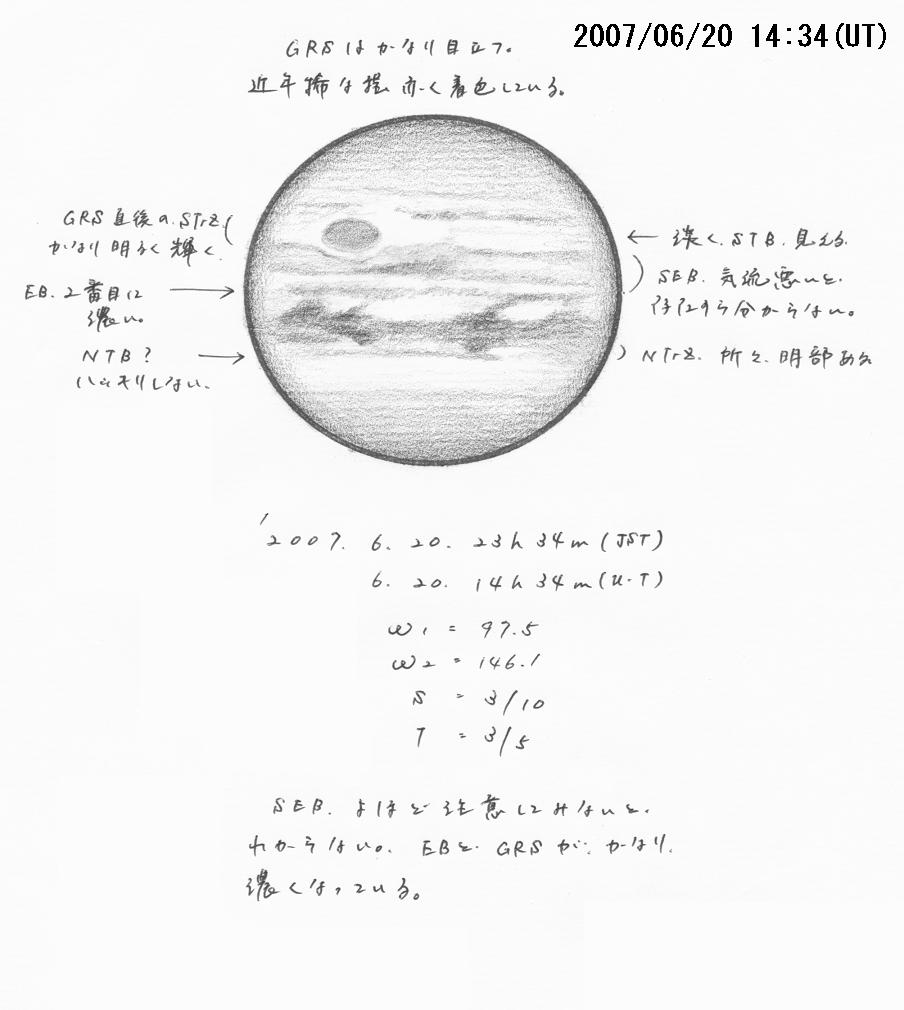 2007/06/20 14:34(UT)
GRSはかなり目立つ。
近年稀な程 赤く着色している。
GRS直後の、STrZ
かなり明るく輝く
← 淡く、STB、見える
SEB、気流悪いと、
存在すら分からない。
EB、2番目に →
濃い。
NTB? →
ハッキリしない、
NTrZ、所々、明部あり
'2007. 6. 20. 23h 34m (JST)
6. 20. 14h 34m (U.T)
ω1 = 97.5
ω2 = 146.1
S = 3/10
T = 3/5
SEB、よほど注意してみないと、
わからない。EBと、GRSが、かなり、
濃くなっている。